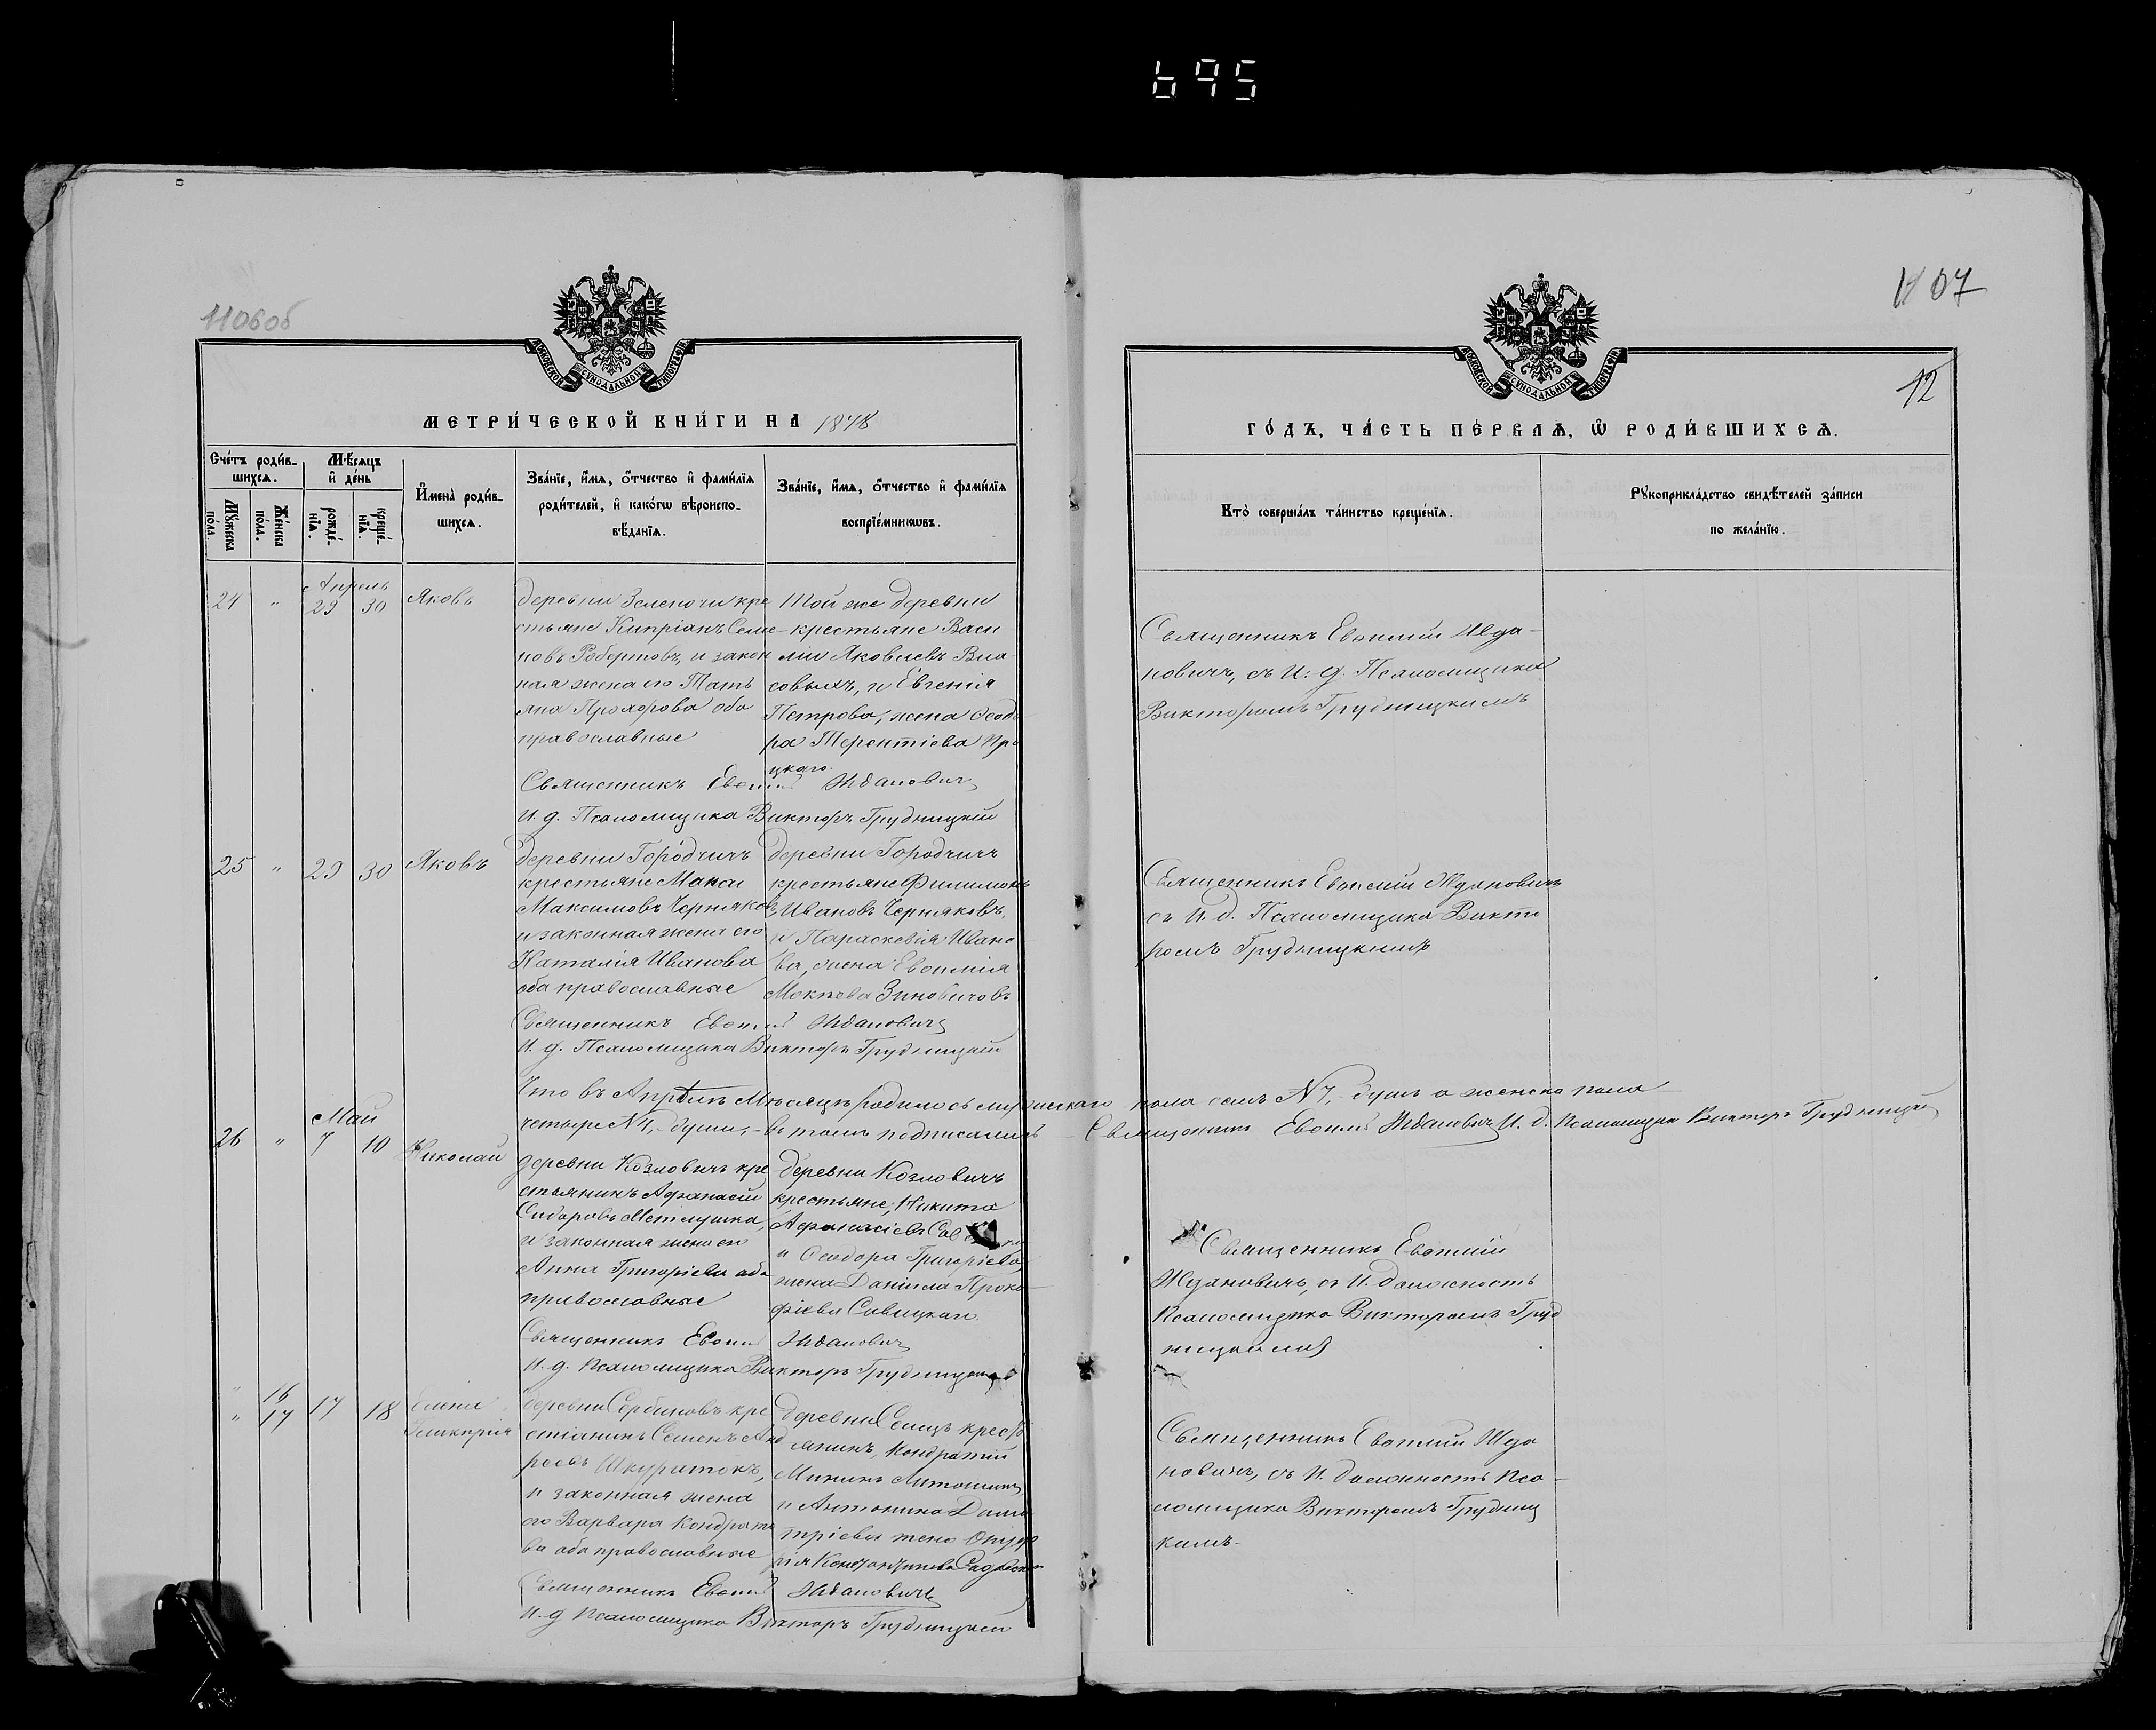 695
110об
1107
12
МОСКОВСКОЙ СѴНОДАЛЬНОЙ ТИПОГРАФІИ
МОСКОВСКОЙ СѴНОДАЛЬНОЙ ТИПОГРАФІИ
МЕТРИ́ЧЕСКОЙ КНИ́ГИ НА 1878
ГО́ДЪ, ЧА́СТЬ ПЕ́РВАѦ, Ѿ РОДИ́ВШИХСѦ.
Сче́тъ роди́в-
шихсѧ.
Мꙋ́жеска
по́ла.
Же́нска
по́ла.
Мѣ́сѧцъ
и҆ де́нь
рожде́-
нїѧ.
креще́-
нїѧ.
И҆мена̀ роди́в-
шихсѧ.
Зва́нїе, и҆́мѧ, ѻ҆́тчество и҆ фами́лїѧ
роди́телей, и҆ како́гѡ вѣроиспо-
вѣ́данїѧ.
Зва́нїе, и҆́мѧ, ѻ҆́тчество и҆ фами́лїѧ
воспрїе́мникѡвъ.
Кто̀ соверша́лъ та́инство креще́нїѧ.
Рꙋкоприкла́дство свидѣ́телей за́писи
по жела́нїю.
Апрель
24 " 29 30 Яковъ
деревни Зеленочи кре
стьяне Кипріанъ Семе-
новъ Робертовъ, и закон
ная жена его Тать
яна Прохорова оба
православные
Той же деревни
крестьяне Васи
лій Яковлевъ Вла-
совыхъ, и Евгенія
Петрова, жена Ѳеодо
ра Терентіева Про
цкаго.
Священникъ Евѳимій Ждановичъ
И. д. Псаломщика Викторъ Грудницкій
Священникъ Евѳимій Жда-
новичъ, съ И. д. Псаломщика
Викторомъ Грудницкимъ
25 " 29 30 Яковъ
деревни Городчичъ
крестьяне
Максимовъ Черняковъ
и законная жена его
Наталія Иванова
оба православные
деревни Городчичъ
крестьяне Филимонъ
Ивановъ Черняковъ,
и Параскевія Ивано
ва, жена Евѳимія
Мокіева Зиновичовъ
Священникъ Евѳимій Ждановичъ
И. д. Псаломщика Викторъ Грудницкій
Священникъ Евѳимій Ждановичъ
съ И. д. Псаломщика Викто
ромъ Грудницкимъ
Что въ Апрѣлѣ Мѣсяцѣ родилось мужескаго пола семь №7, душъ а женска пола
четыре №4, души, въ томъ подписались Священникъ Евѳимій Ждановичъ И. д. Псаломщика Викторъ Грудницкій
Май
26 " 7 10 Николай
деревни Козловичъ кре
стьянинъ Афанасій
Сидоровъ Метлушка,
и законная жена его
Анна Григоріева оба
православные
деревни Козловичъ
крестьяне, Никита
Афанасіевъ
и Ѳеодора Григоріева,
жена Даніила Проко-
фіева Савицкаго.
Священникъ Евѳимій Ждановичъ
И. д. Псаломщика Викторъ Грудницкій
Священникъ Евѳимій
Ждановичъ, съ И. должность
Псаломщика Викторомъ Груд
ницкимъ
" 16
" 17 17 18 Елена
Гликерія
деревни Сербиновъ кре
стіанинъ Семенъ Анд
реевъ Шкуратокъ,
и законная жена
его Варвара Кондрать
ва оба православные
деревни Селецъ кресть
янинъ, Кондратій
Мининъ
и Антонина Дими
тріева жена Онуф
рія Константинова
Священникъ Евѳимій Ждановичъ
И. д Псаломщика Викторъ Грудницкій
Священникъ Евѳимій Жда
новичъ, съ И. должность Пса-
ломщика Викторомъ Грудниц
кимъ-